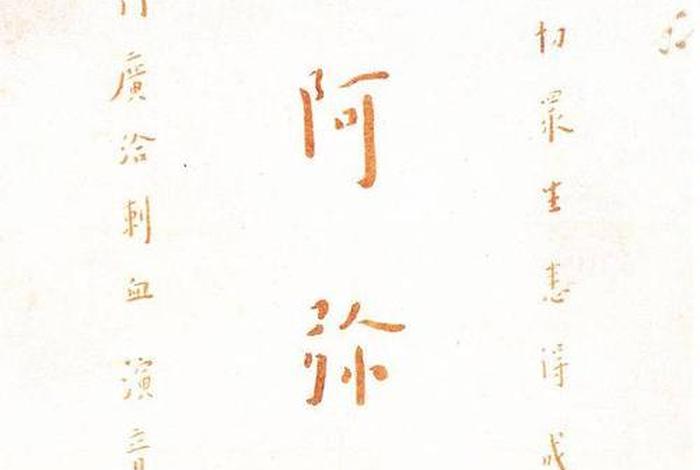 切眾生悉得成
阿弥
廣洽刺血演音